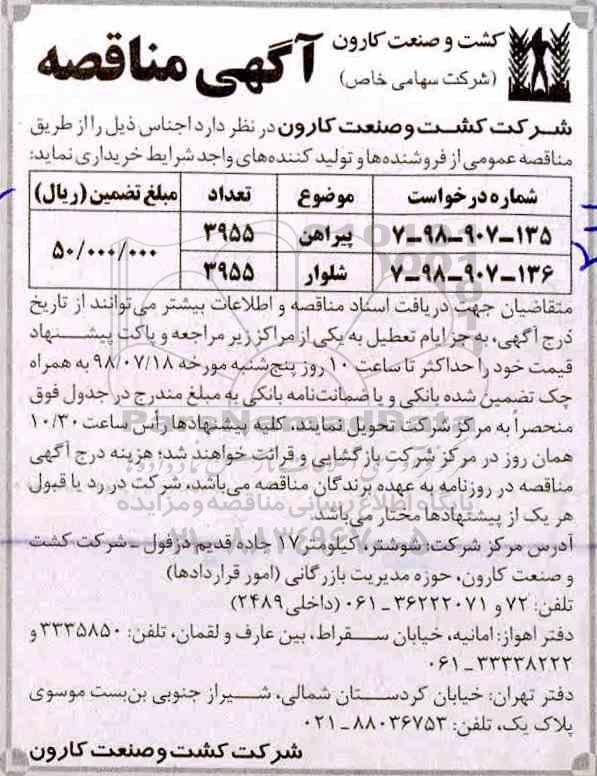 کشت و صنعت کارون
(شرکت سهامی خاص)
آگهی مناقصه
شرکت کشت و صنعت کارون در نظر دارد اجناس ذیل را از طریق
مناقصه عمومی از فروشنده‌ها و تولید کننده‌های واجد شرایط خریداری نماید:
شماره درخواست موضوع تعداد مبلغ تضمین (ریال)
۷-۹۸-۹۰۷-۱۳۵ پیراهن ۳۹۵۵ ۵۰/۰۰۰/۰۰۰
۷-۹۸-۹۰۷-۱۳۶ شلوار ۳۹۵۵
متقاضیان جهت دریافت اسناد مناقصه و اطلاعات بیشتر می‌توانند از تاریخ
درج آگهی، به جز ایام تعطیل به یکی از مراکز زیر مراجعه و پاکت پیشنهاد
قیمت خود را حداکثر تا ساعت ۱۰ روز پنج‌شنبه مورخه ۹۸/۰۷/۱۸ به همراه
چک تضمین شده بانکی و یا ضمانت‌نامه بانکی به مبلغ مندرج در جدول فوق
منحصراً به مرکز شرکت تحویل نمایند، کلیه پیشنهادها رأس ساعت ۱۰/۳۰
همان روز در مرکز شرکت بازگشایی و قرائت خواهند شد؛ هزینه درج آگهی
مناقصه در روزنامه به عهده برندگان مناقصه می‌باشد، شرکت در رد یا قبول
هر یک از پیشنهادها مختار می‌باشد.
آدرس مرکز شرکت: شوشتر، کیلومتر ۱۷ جاده قدیم دزفول - شرکت کشت
و صنعت کارون، حوزه مدیریت بازرگانی (امور قراردادها)
تلفن: ۷۲ و ۳۶۲۲۲۰۷۱-۰۶۱ (داخلی ۲۴۸۹)
دفتر اهواز: امانیه، خیابان سقراط، بین عارف و لقمان، تلفن: ۳۳۳۵۸۵۰ و
۳۳۳۳۸۲۲۲-۰۶۱
دفتر تهران: خیابان کردستان شمالی، شیراز جنوبی بن‌بست موسوی
پلاک یک، تلفن: ۸۸۰۳۶۷۵۳-۰۲۱
شرکت کشت و صنعت کارون
ParsNamadData
پایگاه اطلاع رسانی مناقصه و مزایده